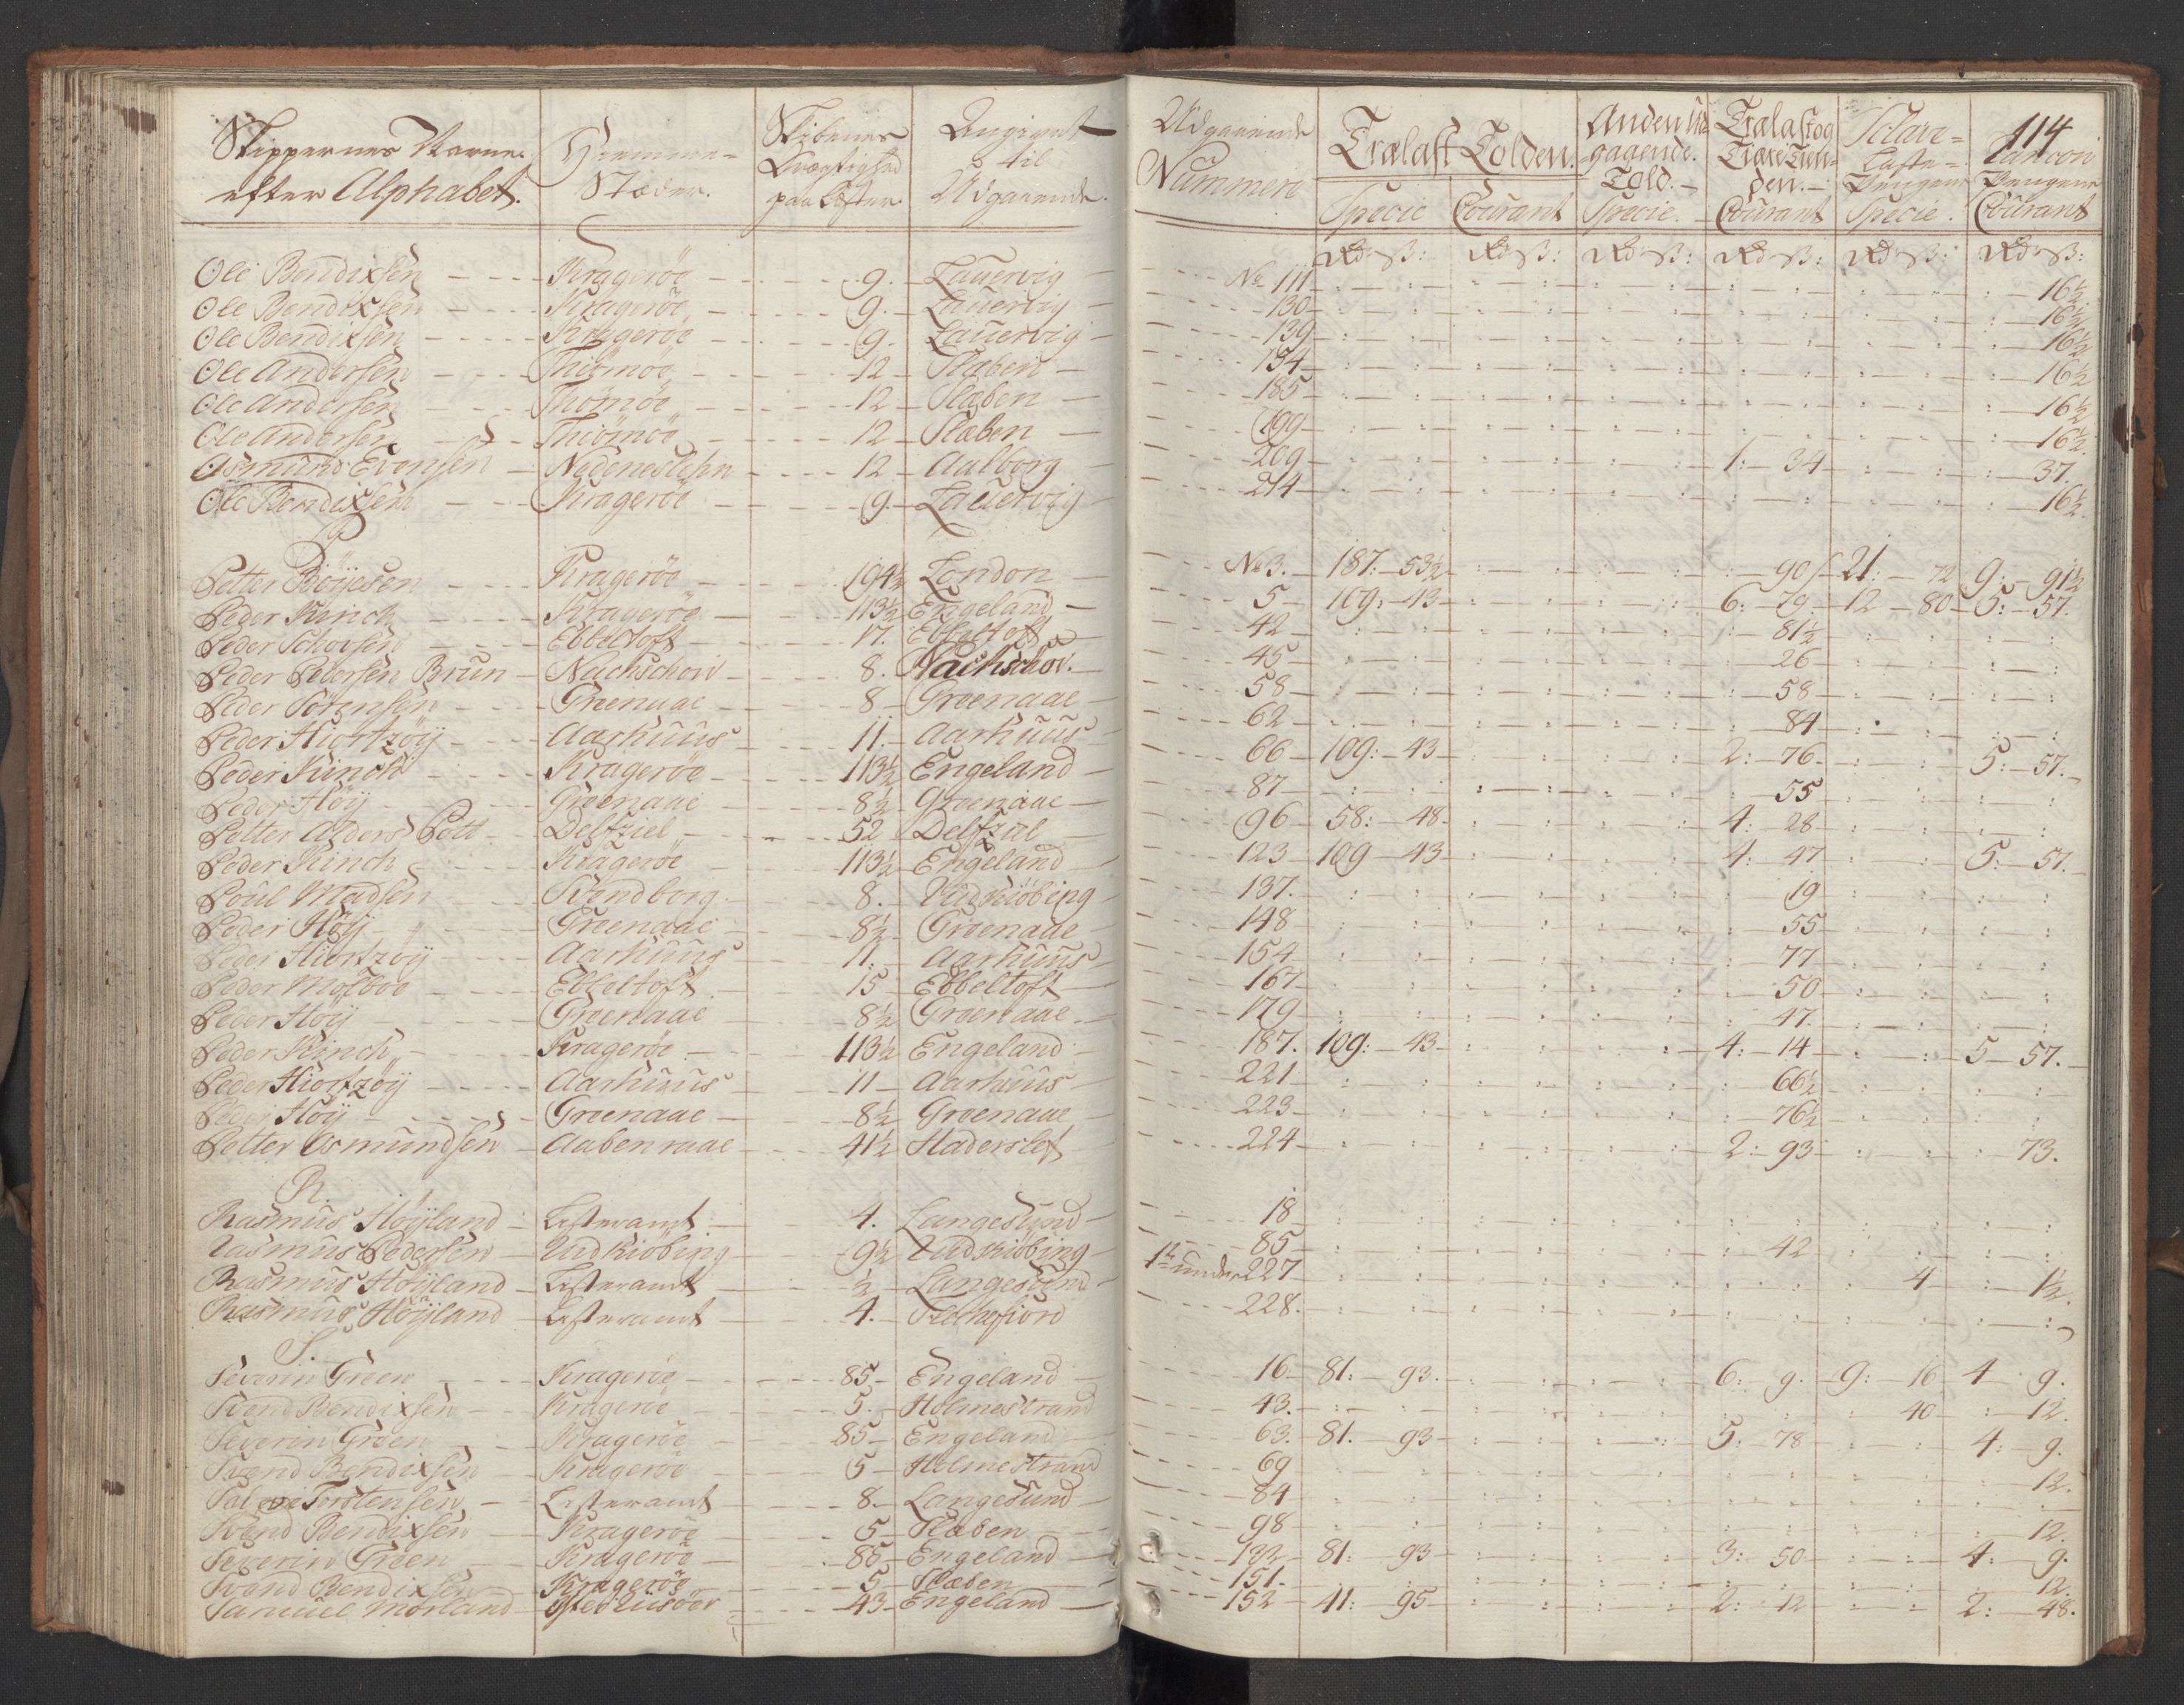 114
Skippernes Navne efter Alphabet. | Hiemme-Stæder. | Skibenes Drægtighed paa Læster | Angivet til Udgaaende. | Udgaaende Nummere | Trælast Tolden. Specie | Courant | Anden Udgagende Told.- Specie. | Trælast og Tienden.- Courant | Laste-Pengene Specie. | Pengene Courant
Rd ß: | Rd ß: | Rd ß: | Rd ß: | Rd ß: | Rd ß:
Ole Bendixsen - Kragerøe - 9. - Lauervig - No 111 - 16½
Ole Bendixsen - Kragerøe - 9. - Lauervig - 130 - 16½
Ole Bendixsen - Kragerøe - 9. - Lauervig - 139 - 16½
Ole Andersen - Thiømøe - 12 - Staben - 154 - 16½
Ole Andersen - Thiømøe - 12 - Staben - 185 - 16½
Ole Andersen - Thiømøe - 12 - Staben - 199 - 16½
Asmund Evensen - Nedeneslehn - 12 - Aalborg - 209 - 1: 34 - 37.
Ole Bendixsen - Kragerøe - 9. - Lauervig - 214 - 16½
P
Petter Böyesen - Kragerøe - 194½ London - No 3. - 187: 53½ - 90 - 21: 72 - 9: 91½
Peder Kinch - Kragerøe - 113½ Engeland - 5 - 109: 43 - 6: 79. - 12 - 80 - 5: 57.
Peder Schousen - Ebbeltoft - 17. Ebbeltoft - 42 - 81½
Peder Petersen Brun - Nachschow - 8. Nachschov. - 45 - 26
Peder Sörensen - Greenaae - 8 - Greenaae - 58 - 58
Peder Hiortzøy - Aarhuus - 11. - Aarhuus - 62 - 84
Peder Kinch - Kragerøe - 113½ Engeland - 66 - 109: 43 - 2: 76 - 5: 57.
Peder Høy - Greenaae - 8½ - Greenaae - 87 - 55
Petter Alders Pott - Delfziel - 52 - Delfziel - 96 - 58: 48. - 4: 28
Peder Kinch - Kragerøe - 113½ Engeland - 123 - 109 43 - 4: 47 - 5: 57.
Poul Madsen - Svendborg - 8. - Rudkiøbing - 137. - 19
Peder Høy - Greenaae - 8½ - Greenaae - 148 - 55
Peder Hiortzøy - Aarhuus - 11. - Aarhuus - 154 - 77
Peder Molboe - Ebbeltoft - 15 - Ebbeltoft - 167 - 50
Peder Høy - Greenaae - 8½ Greenaae - 179 - 47.
Peder Kinch - Kragerøe - 113½ Engeland - 187. 109: 43 - 4: 14 - 5 57.
Peder Hiortzøy - Aarhuus - 11 - Aarhuus - 221 - 66½
Peder Høy - Greenaae - 8½ Greenaae - 223 - 76½
Petter Asmundsen - Aabenraae - 41½ Haderslef - 224 - 2: 93 - 73.
R.
Rasmus Høyland - Listeramt - 4. Langesund - 18
Rasmus Pedersen - Rudkiøbing - 9½ Rudkiøbing - 85 - 42
Rasmus Høyland - Listeramt - ½ - Langesund - 227 - 4 - 1½.
Rasmus Høyland - Listeramt - 4. - Flechefiord - 228.
S.
Severin Green - Kragerøe - 85 - Engeland - 16 - 81: 93. - 6: 9. - 9: 16 - 4 9.
Svend Bendixsen - Kragerøe - 5. - Holmestrand - 43. - 40 - 12.
Severin Green - Kragerøe - 85 - Engeland - 63. 81. 93 - 5: 78 - 4: 9.
Svend Bendixsen - Kragerøe - 5 - Holmestrand - 69 - 12.
Torstensen - Listeramt - 8. - Langesund - 84
Svend Bendixsen - Kragerøe - 5 - Staben - 98 - 12.
Severin Green - Kragerøe - 85 - Engeland - 132 - 81: 93 - 3: 50 - 4: 9.
Svend Bendixsen - Kragerøe - 5 - Staben - 151. - 12.
Samuel Morland - - 43 - Engeland - 152 - 41: 95 - 2: 12 - 2: 48.